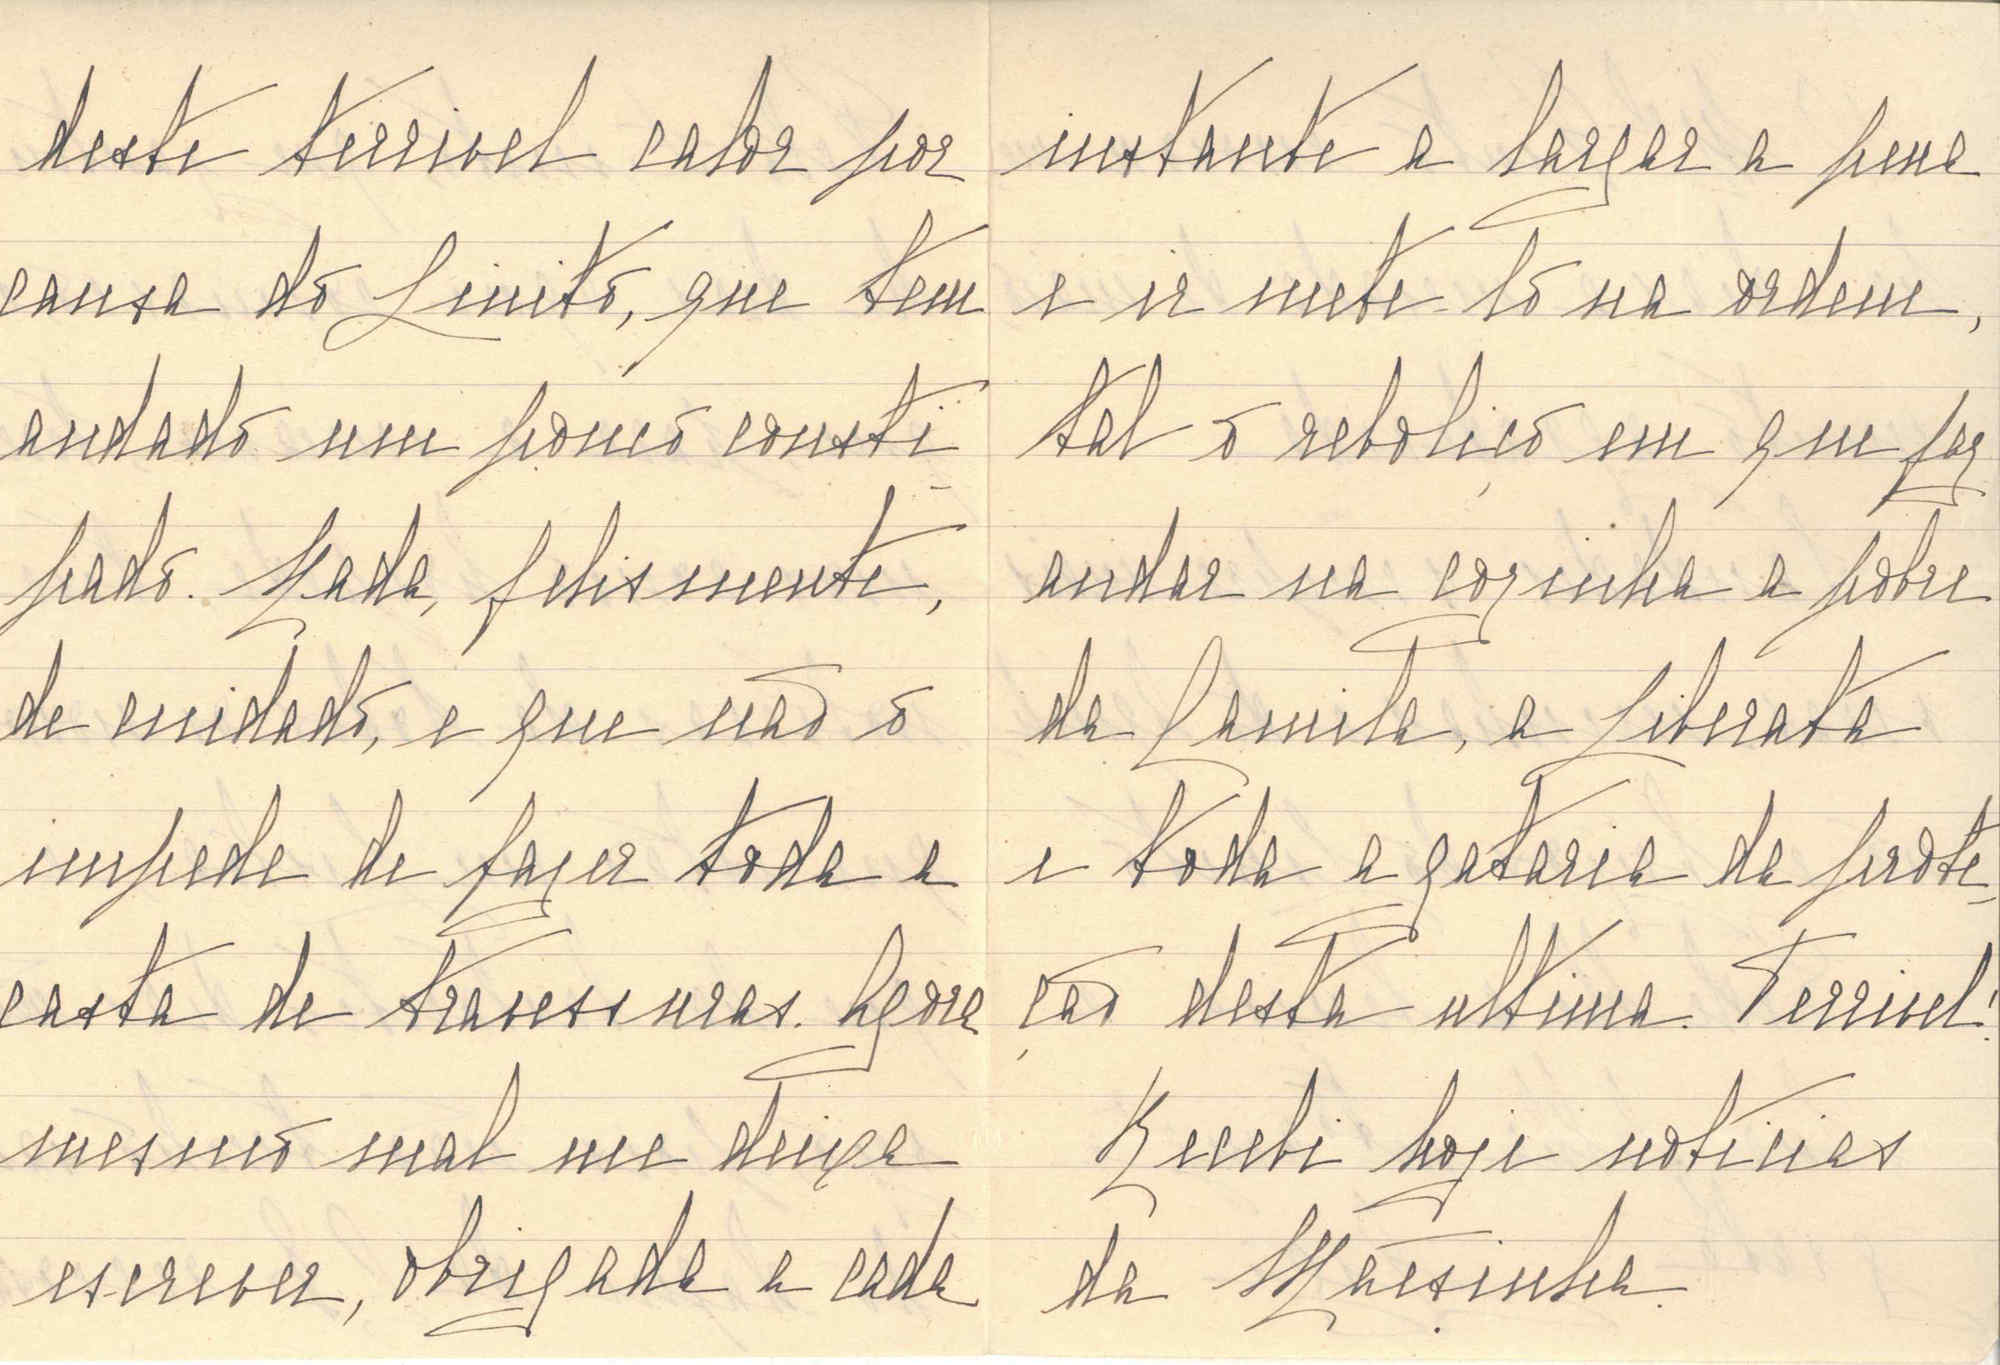 deste terrivel calor por
causa do Linito, que tem
andado um pouco consti-
pado. Nada, felismente,
de cuidado, e que não o
impede de fazer toda a
casta de travessuras. Agora
mesmo mal me deixa
escrever, obrigada a cada
instante a largar a pena
e ir mete-lo na ordem,
tal o reboliço em que faz
andar na cozinha a pobre
da Camila, a Liberata
e toda a gataria da prote-
ção desta ultima. Terrivel!
Recebi hoje noticias
da Mãesinha.